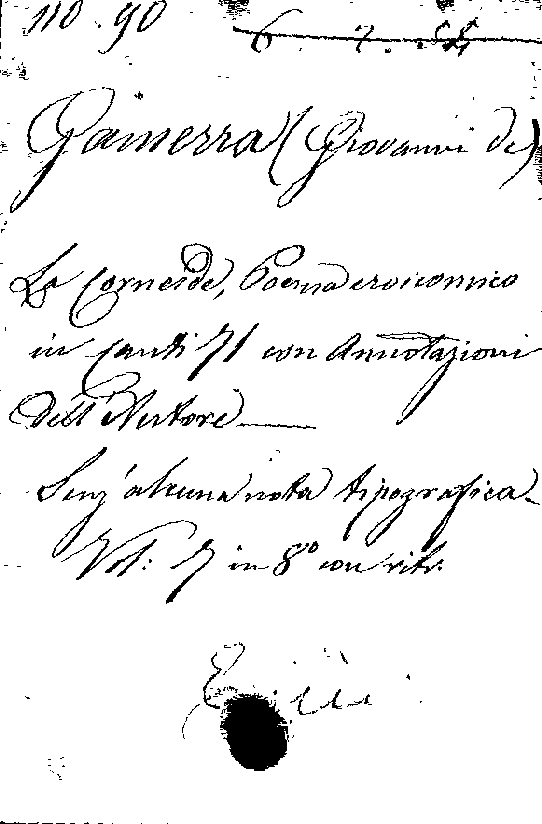 110.90 6.7.54
Gamerra (Giovanni de)
La Corneide, Poema eroicomico
in Canti 71 con Annotazioni
Dell'Autore
Senz'alcuna nota tipografica
Vol: 7 in 8º con ritr.